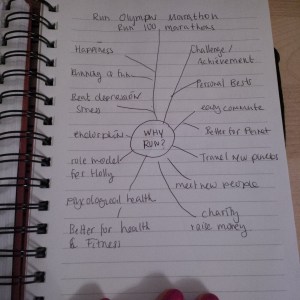 Run Olympic Marathon
Run 100 marathons
Happiness
Challenge/
Achievement
Running is fun
Personal Bests
Beat depression
Stress
easy commute
endorphins
WHY
RUN?
Better for Planet
role model
for Holly
Travel new places
meet new people
Phycological health
charity
raise money
Better for health
& Fitness